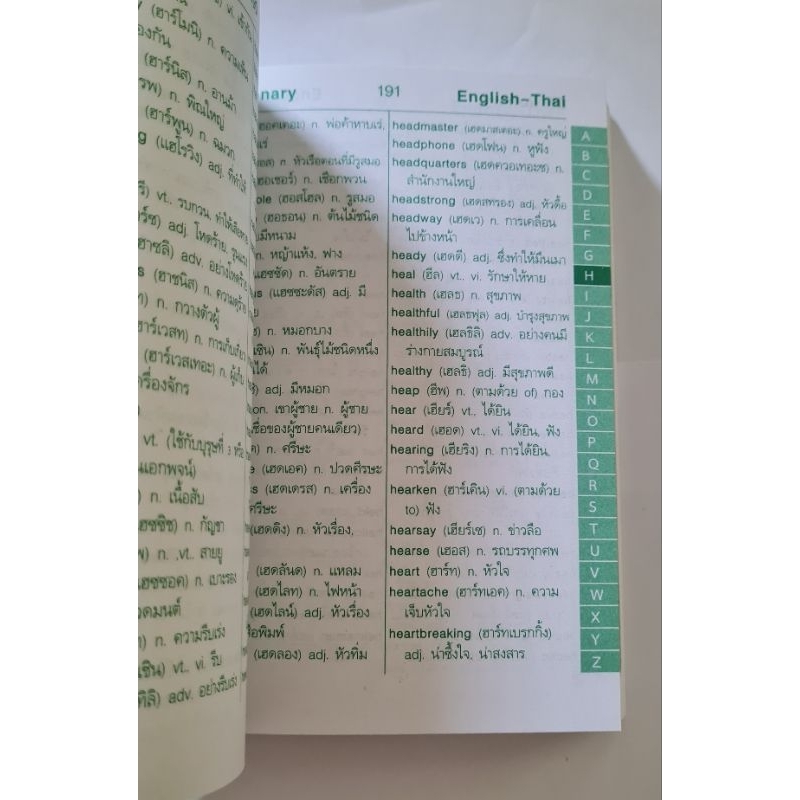 (ฮาร์โมนิ) n. ความ
องกัน
(ฮาร์นิส) n. อานม้า
n. พิณใหญ่
(ฮาร์พูน) n. ฉมวก
(แฮโรวิง) adj. ที่ทำให้
vt., รบกวน, ทำให้
adj. โหดร้าย,
adv. อย่างโหดร้าย
(ฮาชนิส) n. ความดุร้าย
n. กวางตัวผู้
n. การเก็บเกี่ยว
(ฮาร์เวสเทอะ) n. ผู้เก็บ
ครื่องจักร
vt. (ใช้กับบุรุษที่ 3
นเอกพจน์)
n. เนื้อสับ
n. กัญชา
n. ,vt. สายยู
n. เบาะรอง
ดมนต์
n. ความรีบเร่ง
vt., vi. รีบ
adv. อย่างรีบเร่ง
nary 191 English-Thai
n. พ่อค้าหาบเร่,
ร่
n. หัวเรือตอนที่มีรูสมอ
n. เชือกพวน
ole (ฮอสโฮล) n. รูสมอ
(ฮอธอน) n. ต้นไม้ชนิด
มีหนาม
n. หญ้าแห้ง, ฟาง
(แฮซซัด) n. อันตราย
us (แฮซซะดัส) adj. มี
n. หมอกบาง
n. พันธุ์ไม้ชนิดหนึ่ง
ได้
adj. มีหมอก
on. เขาผู้ชาย n. ผู้ชาย
ชื่อของผู้ชายคนเดียว)
n. ศรีษะ
e (เฮดเอค) n. ปวดศีรษะ
s (เฮดเดรส) n. เครื่อง
ศรีษะ
(เฮดดิง) n. หัวเรื่อง,
(เฮดลันด) n. แหลม
(เฮดไลท) n. ไฟหน้า
(เฮดไลน์) adj. หัวเรื่อง
อพิมพ์
(เฮดลอง) adj. หัวทิ่ม
headmaster (เฮดมาสเตอะ) n. ครูใหญ่
headphone (เฮดโฟน) n. หูฟัง
headquarters (เฮดควอเทอะซ) n.
สำนักงานใหญ่
headstrong (เฮดสทรอง) adj. หัวดื้อ
headway (เฮดเว) n. การเคลื่อน
ไปข้างหน้า
heady (เฮดดี) adj. ซึ่งทำให้มึนเมา
heal (ฮีล) vt., vi. รักษาให้หาย
health (เฮลธ) n. สุขภาพ
healthful (เฮลธฟุล) adj. บำรุงสุขภาพ
healthily (เฮลธิลิ) adv. อย่างคนมี
ร่างกายสมบูรณ์
healthy (เฮลธิ) adj. มีสุขภาพดี
heap (ฮีพ) n. (ตามด้วย of) กอง
hear (เฮียร์) vt., ได้ยิน
heard (เฮอด) vt., vi. ได้ยิน, ฟัง
hearing (เฮียริง) n. การได้ยิน,
การได้ฟัง
hearken (ฮาร์เคิน) vi. (ตามด้วย
to) ฟัง
hearsay (เฮียร์เซ) n. ข่าวลือ
hearse (เฮอส) n. รถบรรทุกศพ
heart (ฮาร์ท) n. หัวใจ
heartache (ฮาร์ทเอค) n. ความ
เจ็บหัวใจ
heartbreaking (ฮาร์ทเบรกกิ้ง)
adj. น่าซึ้งใจ, น่าสงสาร
A
B
C
D
E
F
G
H
I
J
K
L
M
N
O
P
Q
R
S
T
U
V
W
X
Y
Z